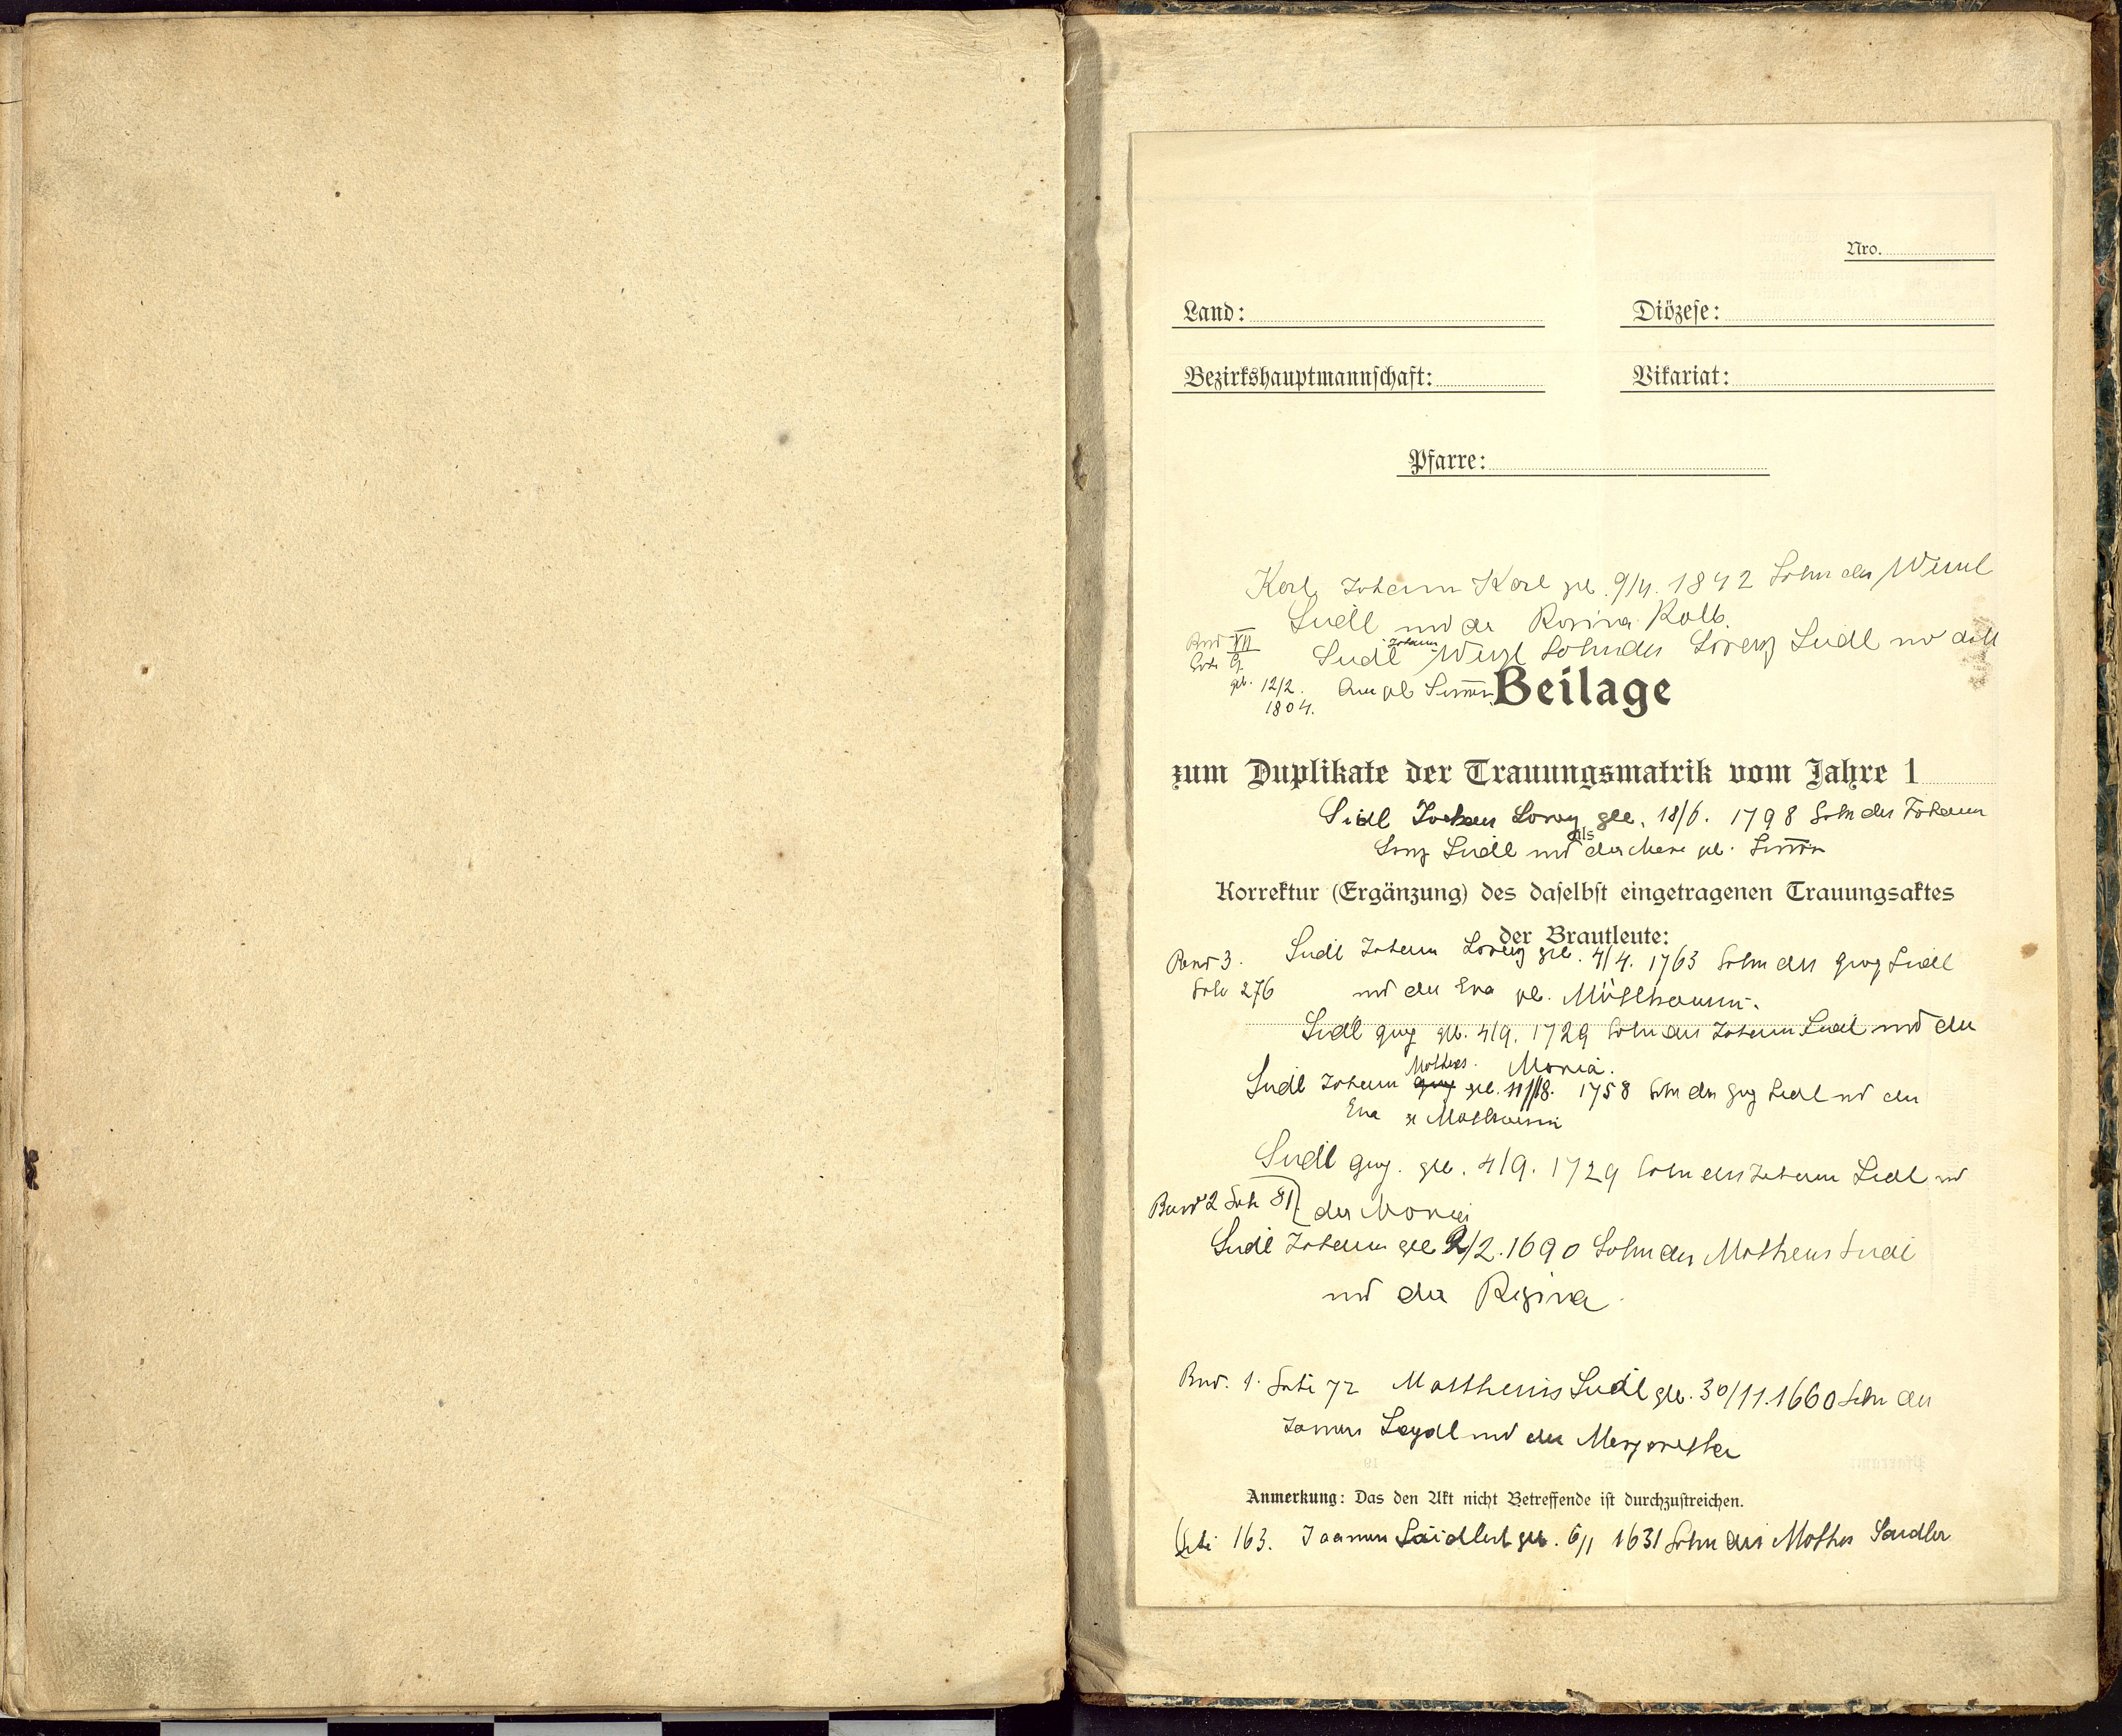 Nro.
Land: Diözese:
Bezirkshauptmannschaft: Vikariat:
Pfarre:
Karl Johann Karl geb. 9/4. 1842 Sohn des
Seidl und der Rosina Kolb.
Band VII Seidl Johann Sohn des Lorenz Seidl
geb. 12/2. 1804.
Beilage
zum Duplikate der Trauungsmatrik vom Jahre 1
Seidl Johann Lorenz geb. 18/6. 1798 Sohn des Johann
Seidl und der
als
Korrektur (Ergänzung) des daselbst eingetragenen Trauungsaktes
der Brautleute:
Band 3. Seidl Johann Lorenz geb. 4/4. 1763 Sohn des Georg Seidl
276 und der Eva
Seidl Georg geb. 4/9. 1729 Sohn des Johann Seidl und der
Maria.
Seidl Johann Matheus geb. 1758 Sohn des Georg Seidl und der
Eva
Seidl Georg. geb. 4/9. 1729 Sohn des Johann Seidl und
Band 2 Seite 81 der Maria
Seidl Johann geb 2/2. 1690 Sohn des Matheus Seidl
und der Regina
Band. 1. Seite 72 Mattheus Seidl geb. 30/11. 1660 Sohn des
Seydl und der Margaretha
Anmerkung: Das den Akt nicht Betreffende ist durchzustreichen.
Seite 163. geb. 6/1 1631 Sohn des Mathes